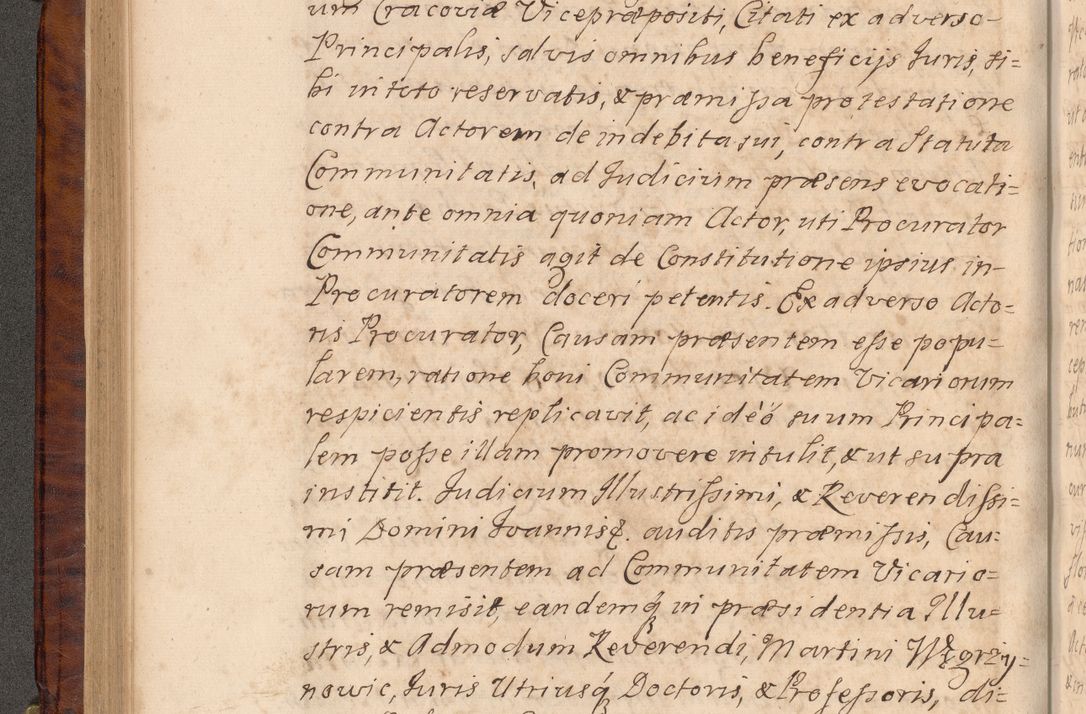 um Cracoviæ Vicepræpositi, Citati ex adverso
Principalis, salvis omnibus beneficijs Juris, si=
bi in toto reservatis, & præmissa protestatione
contra Actorem de indebita sui, contra Statuta
Communitatis, ad Judicium præsens evocati=
one, ante omnia quoniam Actor, uti Procurator
Communitatis agit de Constitutione ipsius in
Procuratorem doceri petentis. Ex adverso Acto=
ris Procurator, Causam præsentem esse popu=
larem, ratione boni Communitatem Vicariorum
respicientis replicavit, ac idèò suum Principa=
lem posse illam promovere intulit, & ut supra
institit. Judicium Illustrissimi, & Reverendissi=
mi Domini Joannis &. auditis præmissis, Cau=
sam præsentem ad Communitatem Vicario=
rum remisit, eandemq́ in præsidentia Illu=
stris, & Admodum Reverendi, Martini Węgrzy=
nowic, Juris Utriusq́ Doctoris, & Professoris, di=